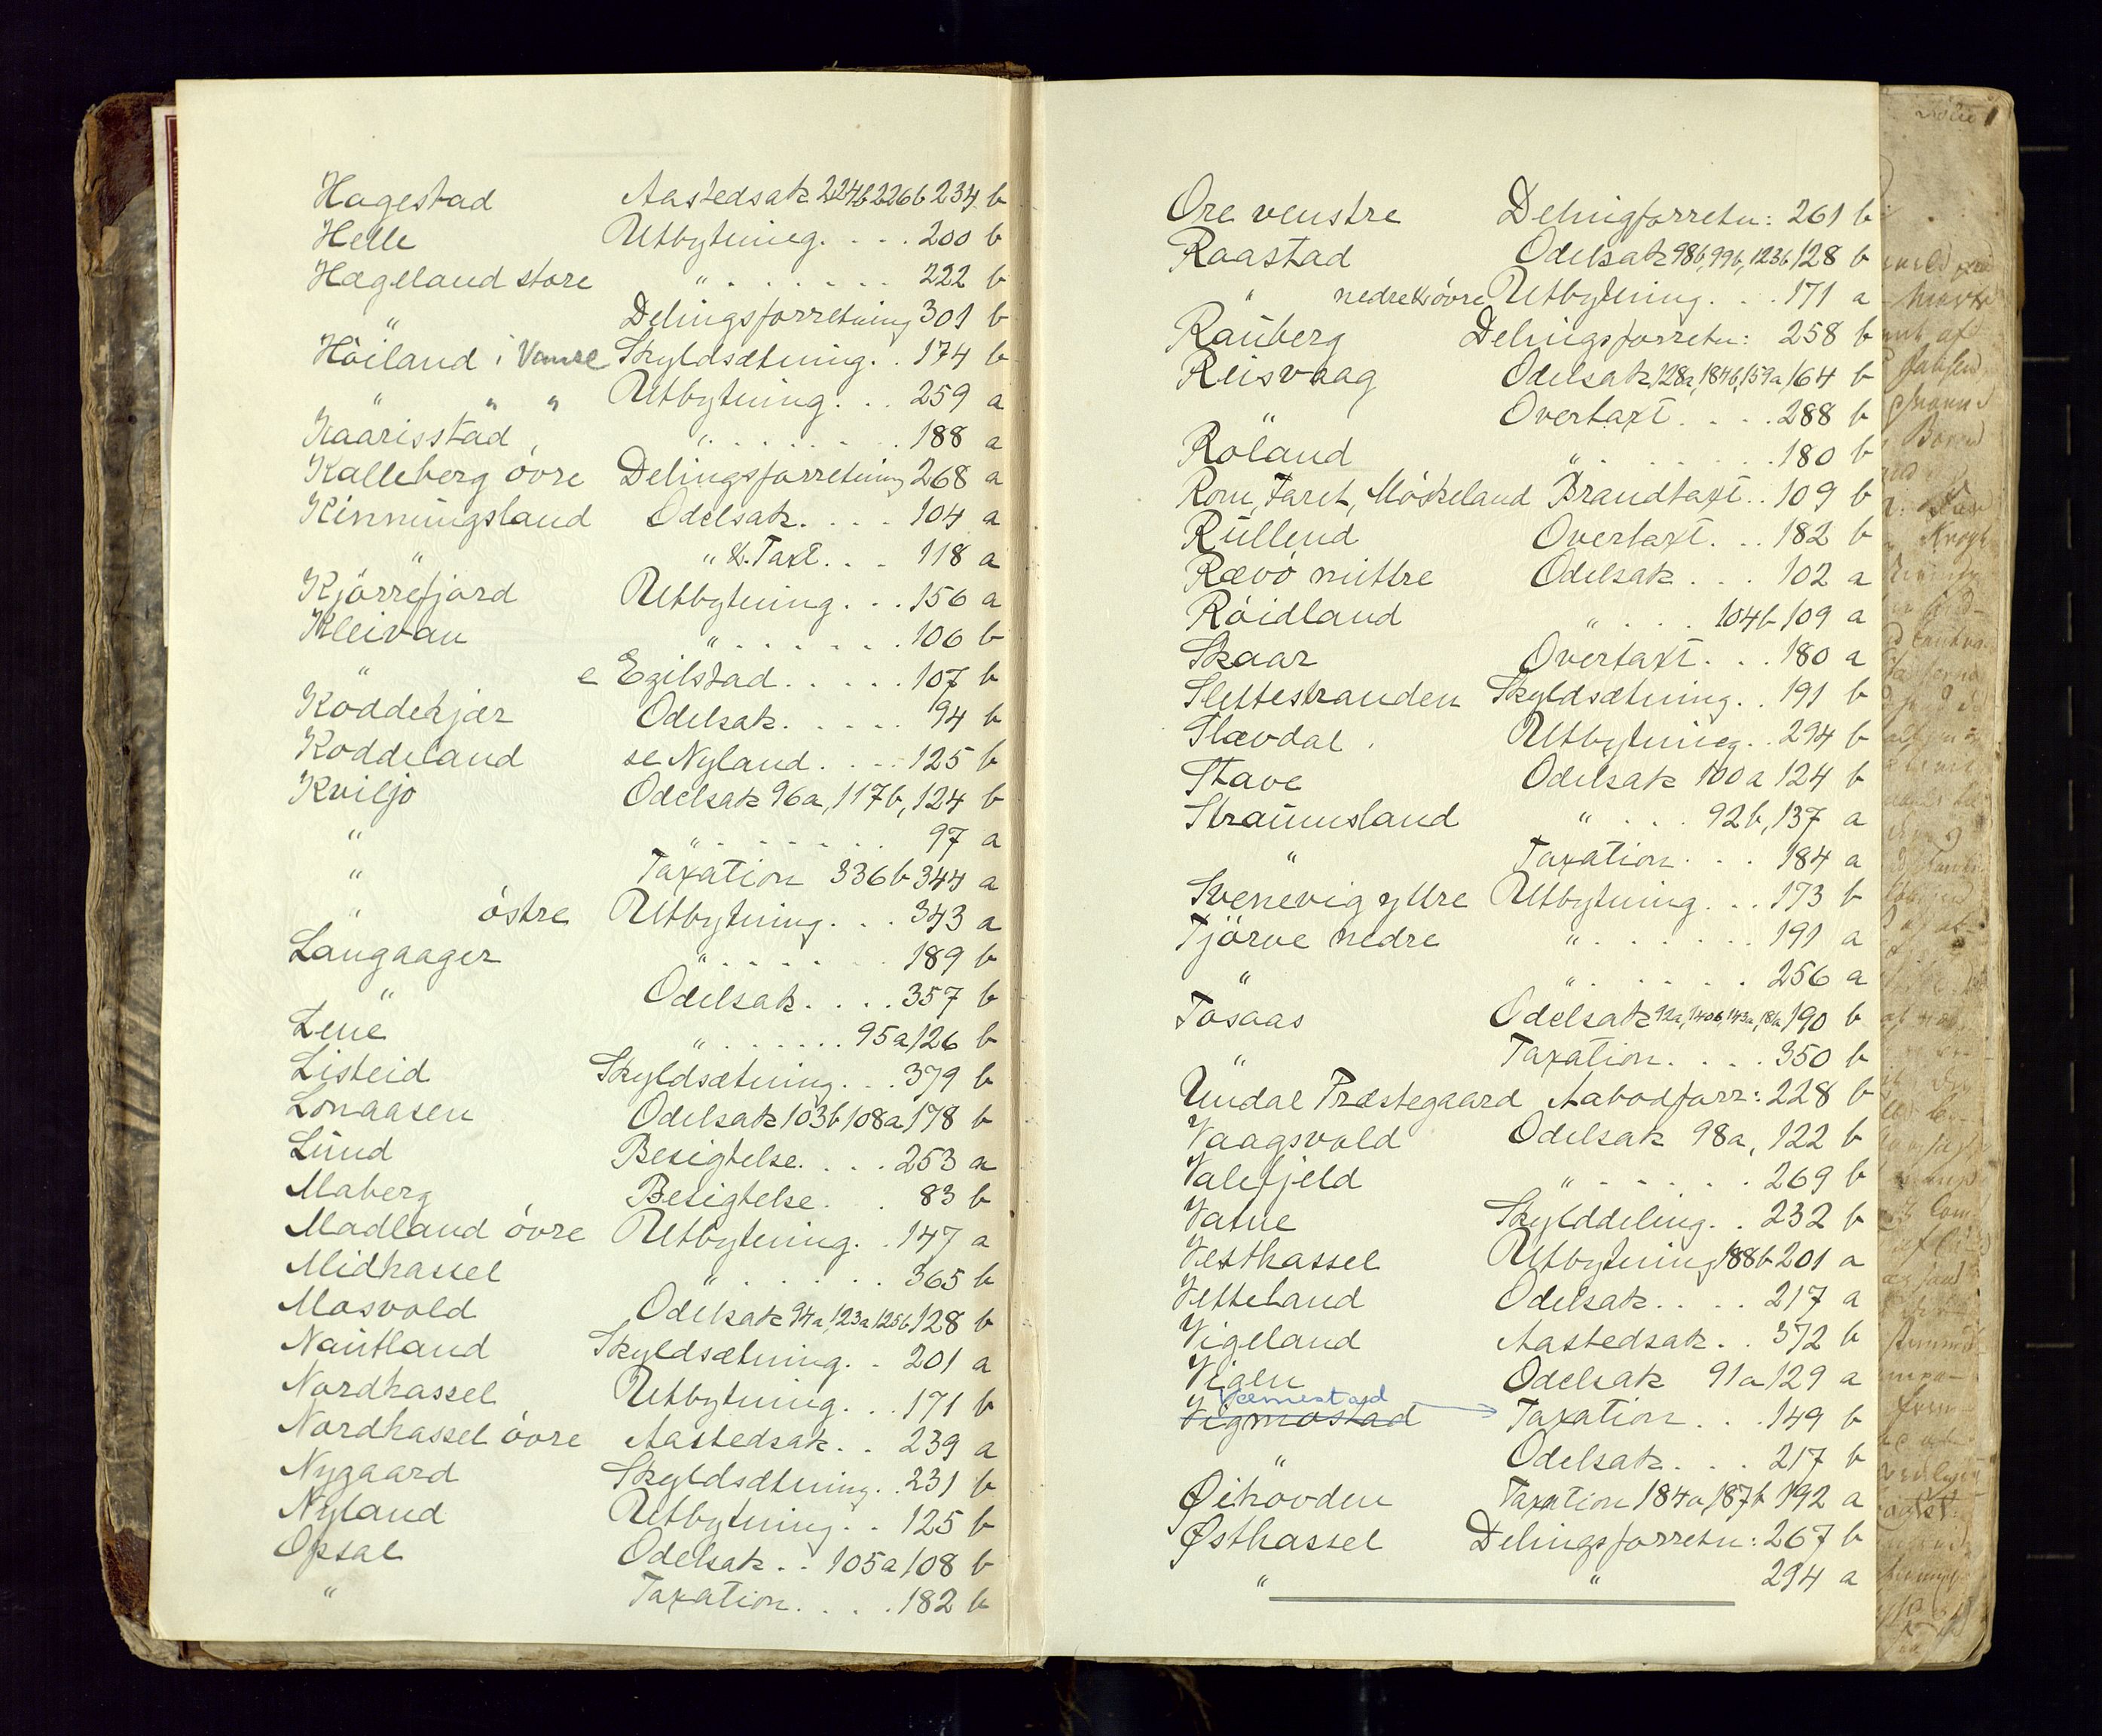 Hagestad Aastedsak 224b 226b 234 b
Helle Utbytning. . . . 200 b
Hægeland store " . . . . . . . 222 b
" Delingsforretning 301 b
Höiland i Vanse Skyldsætning. . 174 b
" " " Utbytning. . . 259 a
Kaarisstad " . . . . . . . 188 a
Kalleberg övre Delingsforretning 268 a
Kinningsland Odelsak. . . . 104 a
" " & Taxt. . . 118 a
Kjörrefjord Utbytning. . . 156 a
Kleivan " . . . . . . . 106 b
" e Egilstad. . . . . 107 b
Köddekjær Odelsak. . . . . 94 b
Koddeland se Nyland. . . . 125 b
Kviljo Odelsak 96a, 117b, 124 b
" " . . . . . . . 97 a
" Taxation 336b 344 a
" östre Utbytning. . . 343 a
Langaager " . . . . . . 189 b
" Odelsak. . . . 357 b
Lene " . . . . . . 95a 126 b
Listeid Skyldsætning. . . 379 b
Lonaasen Odelsak 103b 108a 178 b
Lund Besigtelse. . . . 253 a
Maberg Besigtelse. . 83 b
Madland övre Utbytning. . 147 a
Midhassel " . . . . . . 365 b
Mosvold Odelsak 94a, 123a 125b 128 b
Nautland Skyldsætning. . 201 a
Nordhassel Utbytning. . . 171 b
Nordhassel övre Aastedsak. . 239 a
Nygaard Skyldsætning. . 231 b
Nyland Utbytning. . . 125 b
Opsal Odelsak. . 105a 108 b
" Taxation. . . . 182 b
Ore venstre Delingforretn: 261 b
Raastad Odelsak 98b, 99b, 123b 128 b
" nedre & övre Utbytning. . . 171 a
Rauberg Delingsforretn: 258 b
Reisvaag Odelsak 128a, 184b, 159a 164 b
" Overtaxt. . . . 288 b
Roland " . . . . . . . 180 b
Rom, Faret, Möskeland Brandtaxt. . 109 b
Rullend Overtaxt. . . 182 b
Rævö mittre Odelsak. . . 102 a
Röidland " . . . . 104b 109 a
Skaar Overtaxt. . . 180 a
Slettestranden Skyldsætning. . 191 b
Slævdal Utbytning. . 294 b
Stave Odelsak 100a 124 b
Straumsland " . . . 92b, 137 a
" Taxation. . . 184 a
Svenevig yttre Utbytning. . . 173 b
Tjörve nedre " . . . . . . . 191 a
" " . . . . . . 256 a
Tosaas Odelsak 92a, 140b, 143a, 181a 190 b
" Taxation. . . . 350 b
Undal Præstegaard Aabodforr: 228 b
Vaagsvold Odelsak 98a, 122 b
Valefjeld " . . . . . . 269 b
Vatne Skylddeling. . 232 b
Vesthassel Utbytning 188b 201 a
Vetteland Odelsak. . . . 217 a
Vigeland Aastedsak. . 372 b
Vigen Odelsak 91a 129 a
Vemestad
Vigmostad Taxation. . . 149 b
" Odelsak. . . . 217 b
Øihovden Taxation 184a, 187b 192 a
Østhassel Delingsforretn: 267 b
" " 294 a